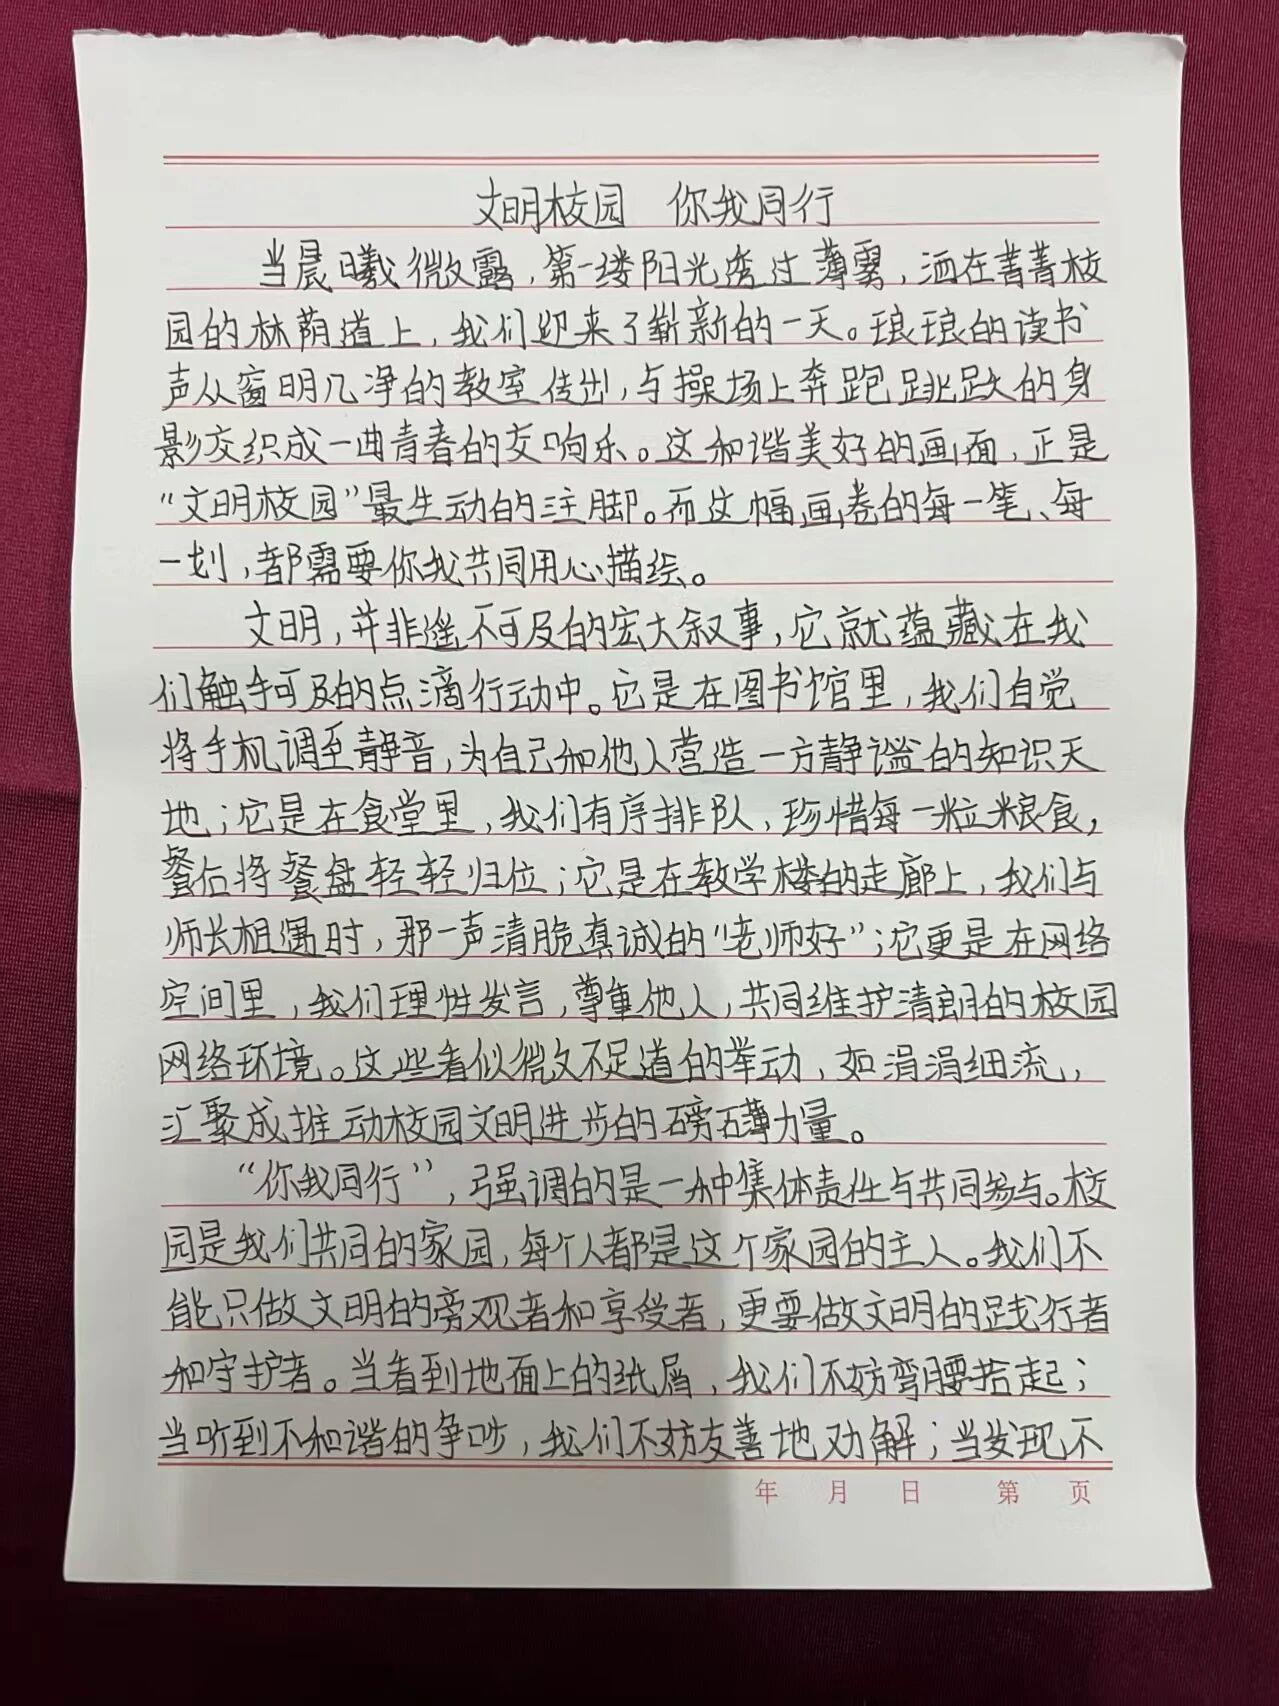 文明校园 你我同行
当晨曦微露,第一缕阳光透过薄雾,洒在菁菁校
园的林荫道上,我们迎来了崭新的一天。琅琅的读书
声从窗明几净的教室传出,与操场上奔跑跳跃的身
影交织成一曲青春的交响乐。这和谐美好的画面,正是
“文明校园”最生动的注脚。而这幅画卷的每一笔、每
一划,都需要你我共同用心描绘。
文明,并非遥不可及的宏大叙事,它就蕴藏在我
们触手可及的点滴行动中。它是在图书馆里,我们自觉
将手机调至静音,为自己和他人营造一方静谧的知识天
地;它是在食堂里,我们有序排队,珍惜每一粒粮食,
餐后将餐盘轻轻归位;它是在教学楼的走廊上,我们与
师长相遇时,那一声清脆真诚的“老师好”;它更是在网络
空间里,我们理性发言,尊重他人,共同维护清朗的校园
网络环境。这些看似微不足道的举动,如涓涓细流,
汇聚成推动校园文明进步的磅礴力量。
“你我同行”,强调的是一种集体责任与共同参与。校
园是我们共同的家园,每个人都是这个家园的主人。我们不
能只做文明的旁观者和享受者,更要做文明的践行者
和守护者。当看到地面上的纸屑,我们不妨弯腰拾起;
当听到不和谐的争吵,我们不妨友善地劝解;当发现不
年 月 日 第 页